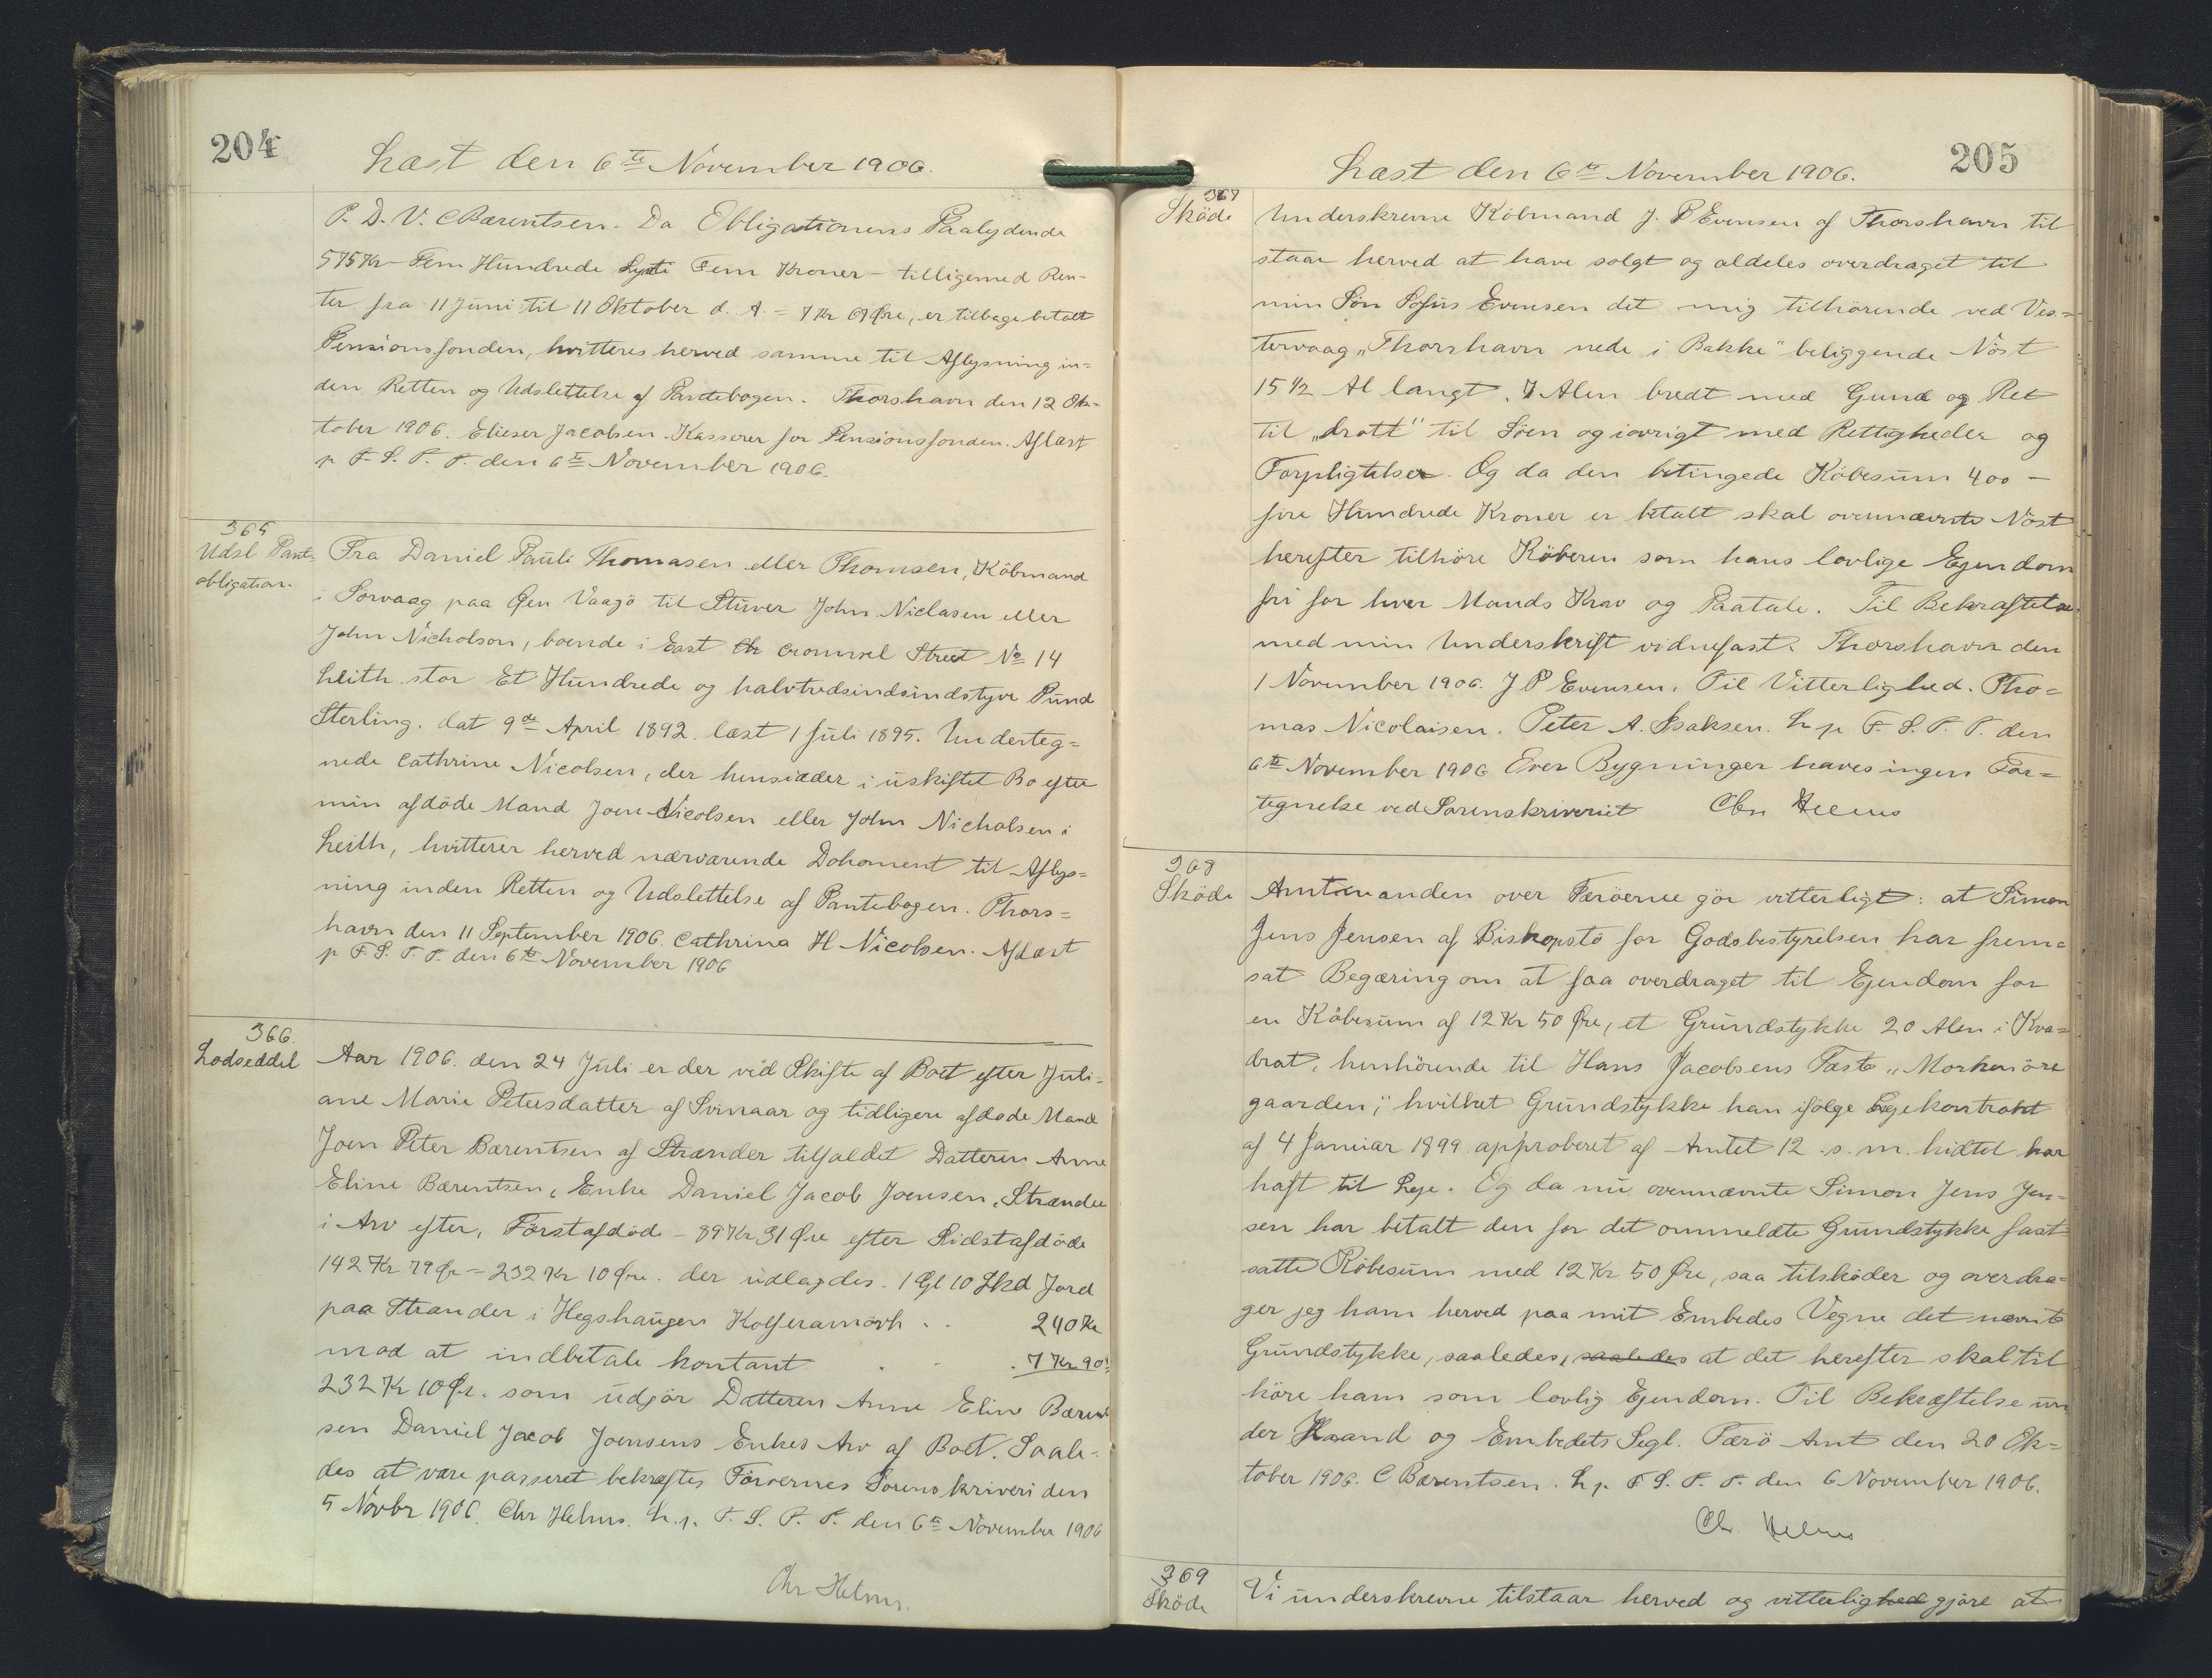 204
Læst den 6te November 1906.
P. D. V. CBærentsen. Da Obligationens Paalydende
575 Kr - Fem Hundrede Sytti Fem Kroner - tilligemed Ren-
ter fra 11 Juni til 11 Oktober d. A. = 7 Kr 67 Øre, er tilbagebetalt
Pensionsfonden, kvitteres herved samme til Aflysning in=
den Retten og Udslettelse af Pantebogen. Thorshavn den 12 Ok-
tober 1906. Elieser Jacobsen. Kasserer for Pensionsfonden. Aflæst
p F. S. T. P. den 6te November 1906.
365
Udsl Pante-
obligation.
Fra Daniel Pauli Thomasen eller Thomsen, Købmand
i Sorvaag paa Øen Vaagö til Stuver John Niclasen eller
John Nicholson, boende i East Cromwel Street No 14
Leith stor Et Hundrede og halvtredsindsindstyve Pund
Sterling. dat 9de April 1892. læst 1 Juli 1895. Underteg=
nede Cathrine Nicolsen, der hensidder i uskiftet Bo efter
min afdöde Mand Joen Nicolsen eller John Nicholsen i
Leith, kvitterer herved nærværende Dokoment til Aflys=
ning inden Retten og Udslettelse af Pantebogen. Thors=
havn den 11 September 1906. Cathrina H Nicolsen. Aflæst
p F. S. T. P. den 6te November 1906
366.
Lodseddel
Aar 1906. den 24 Juli er der ved Skifte af Boet efter Juli=
ane Marie Petersdatter af Svinaar og tidligere afdøde Mand
Joen Peter Bærentsen af Strænder tilfaldet Datteren Anne
Eline Bærentsen, Enke Daniel Jacob Joensen, Strænder
i Arv efter, Förstafdöde - 89 Kr 31 Øre efter Sidstafdöde
142 Kr 79 Ør = 232 Kr 10 Øre. der udlagdes. 1 Gl 10 Skd Jord
paa Strander i Hegshaugen Kolferamörk . . 240 Kr
mod at indbetale kontant . . . 7 Kr 90
232 Kr 10 Ør. som udgör Datteren Anne Eline Bærent
sen Daniel Jacob Joensens Enkes Arv af Boet. Saale-
des at være passeret bekræftes Färoernes Sorenskriveri den
5 Novbr 1906. Chr Helms. L. p. F. S. T. P. den 6te November 1906
Chr Helms.
205
Læst den 6te November 1906.
367
Sköde
Underskrevne Köbmand J. P Evensen af Thorshavn til
staar herved at have solgt og aldeles overdraget til
min Sön Sofus Evensen det mig tilhörende ved Ves=
tervaag „Thorshavn nede i Bakke" beliggende Nöst
15 1/2 Al langt, 7 Alen bredt med Gund og Ret
til „drott" til Söen og iovrigt med Rettigheder og
Forpligtelser. Og da den betingede Köbesum 400 -
fire Hundrede Kroner er betalt skal ovennævnte Nöst
herefter tilhöre Köberen som hans lovlige Ejendom
fri for hver Mands Krav og Paatale. Til Bekræftelse
med min Underskrift vidnefast. Thorshavn den
1 November 1906. J P Evensen. Til Vitterlighed. Tho=
mas Nicolaisen. Peter A. Isaksen. L p F. S. T. P. den
6te November 1906 Over Bygninger haves ingen For=
tegnelse ved Sorenskriveriet Chr Helms
368
Sköde
Amtmanden over Færöerne gör vitterligt: at Simon
Jens Jensen af Biskopstö for Godsbestyrelsen har frem=
sat Begæring om at faa overdraget til Ejendom for
en Köbesum af 12 Kr 50 Øre, et Grundstykke 20 Alen i Kva=
drat, henhörende til Hans Jacobsens Fæste „Morkenöre
gaarden", hvilket Grundstykke han ifölge Lejekontrakt
af 4 Januar 1899 approberet af Amtet 12 s. m. hidtil har
haft til Leje. Og da nu ovennævnte Simon Jens Jen-
sen har betalt den for det ommeldte Grundstykke fast
satte Köbesum med 12 Kr 50 Øre, saa tilsköder og overdra=
ger jeg ham herved paa mit Embedes Vegne det nævnte
Grundstykke, saaledes, saaledes at det herefter skal til
höre ham som lovlig Ejendom. Til Bekræftelse un
der Haand og Embedets Segl. Færö Amt den 20 Ok=
tober 1906. C Bærentsen. L p. F. S. T. P. den 6 November 1906.
Chr. Helms
369
Sköde
Vi underskrevne tilstaar herved og vitterlighed gjöre at